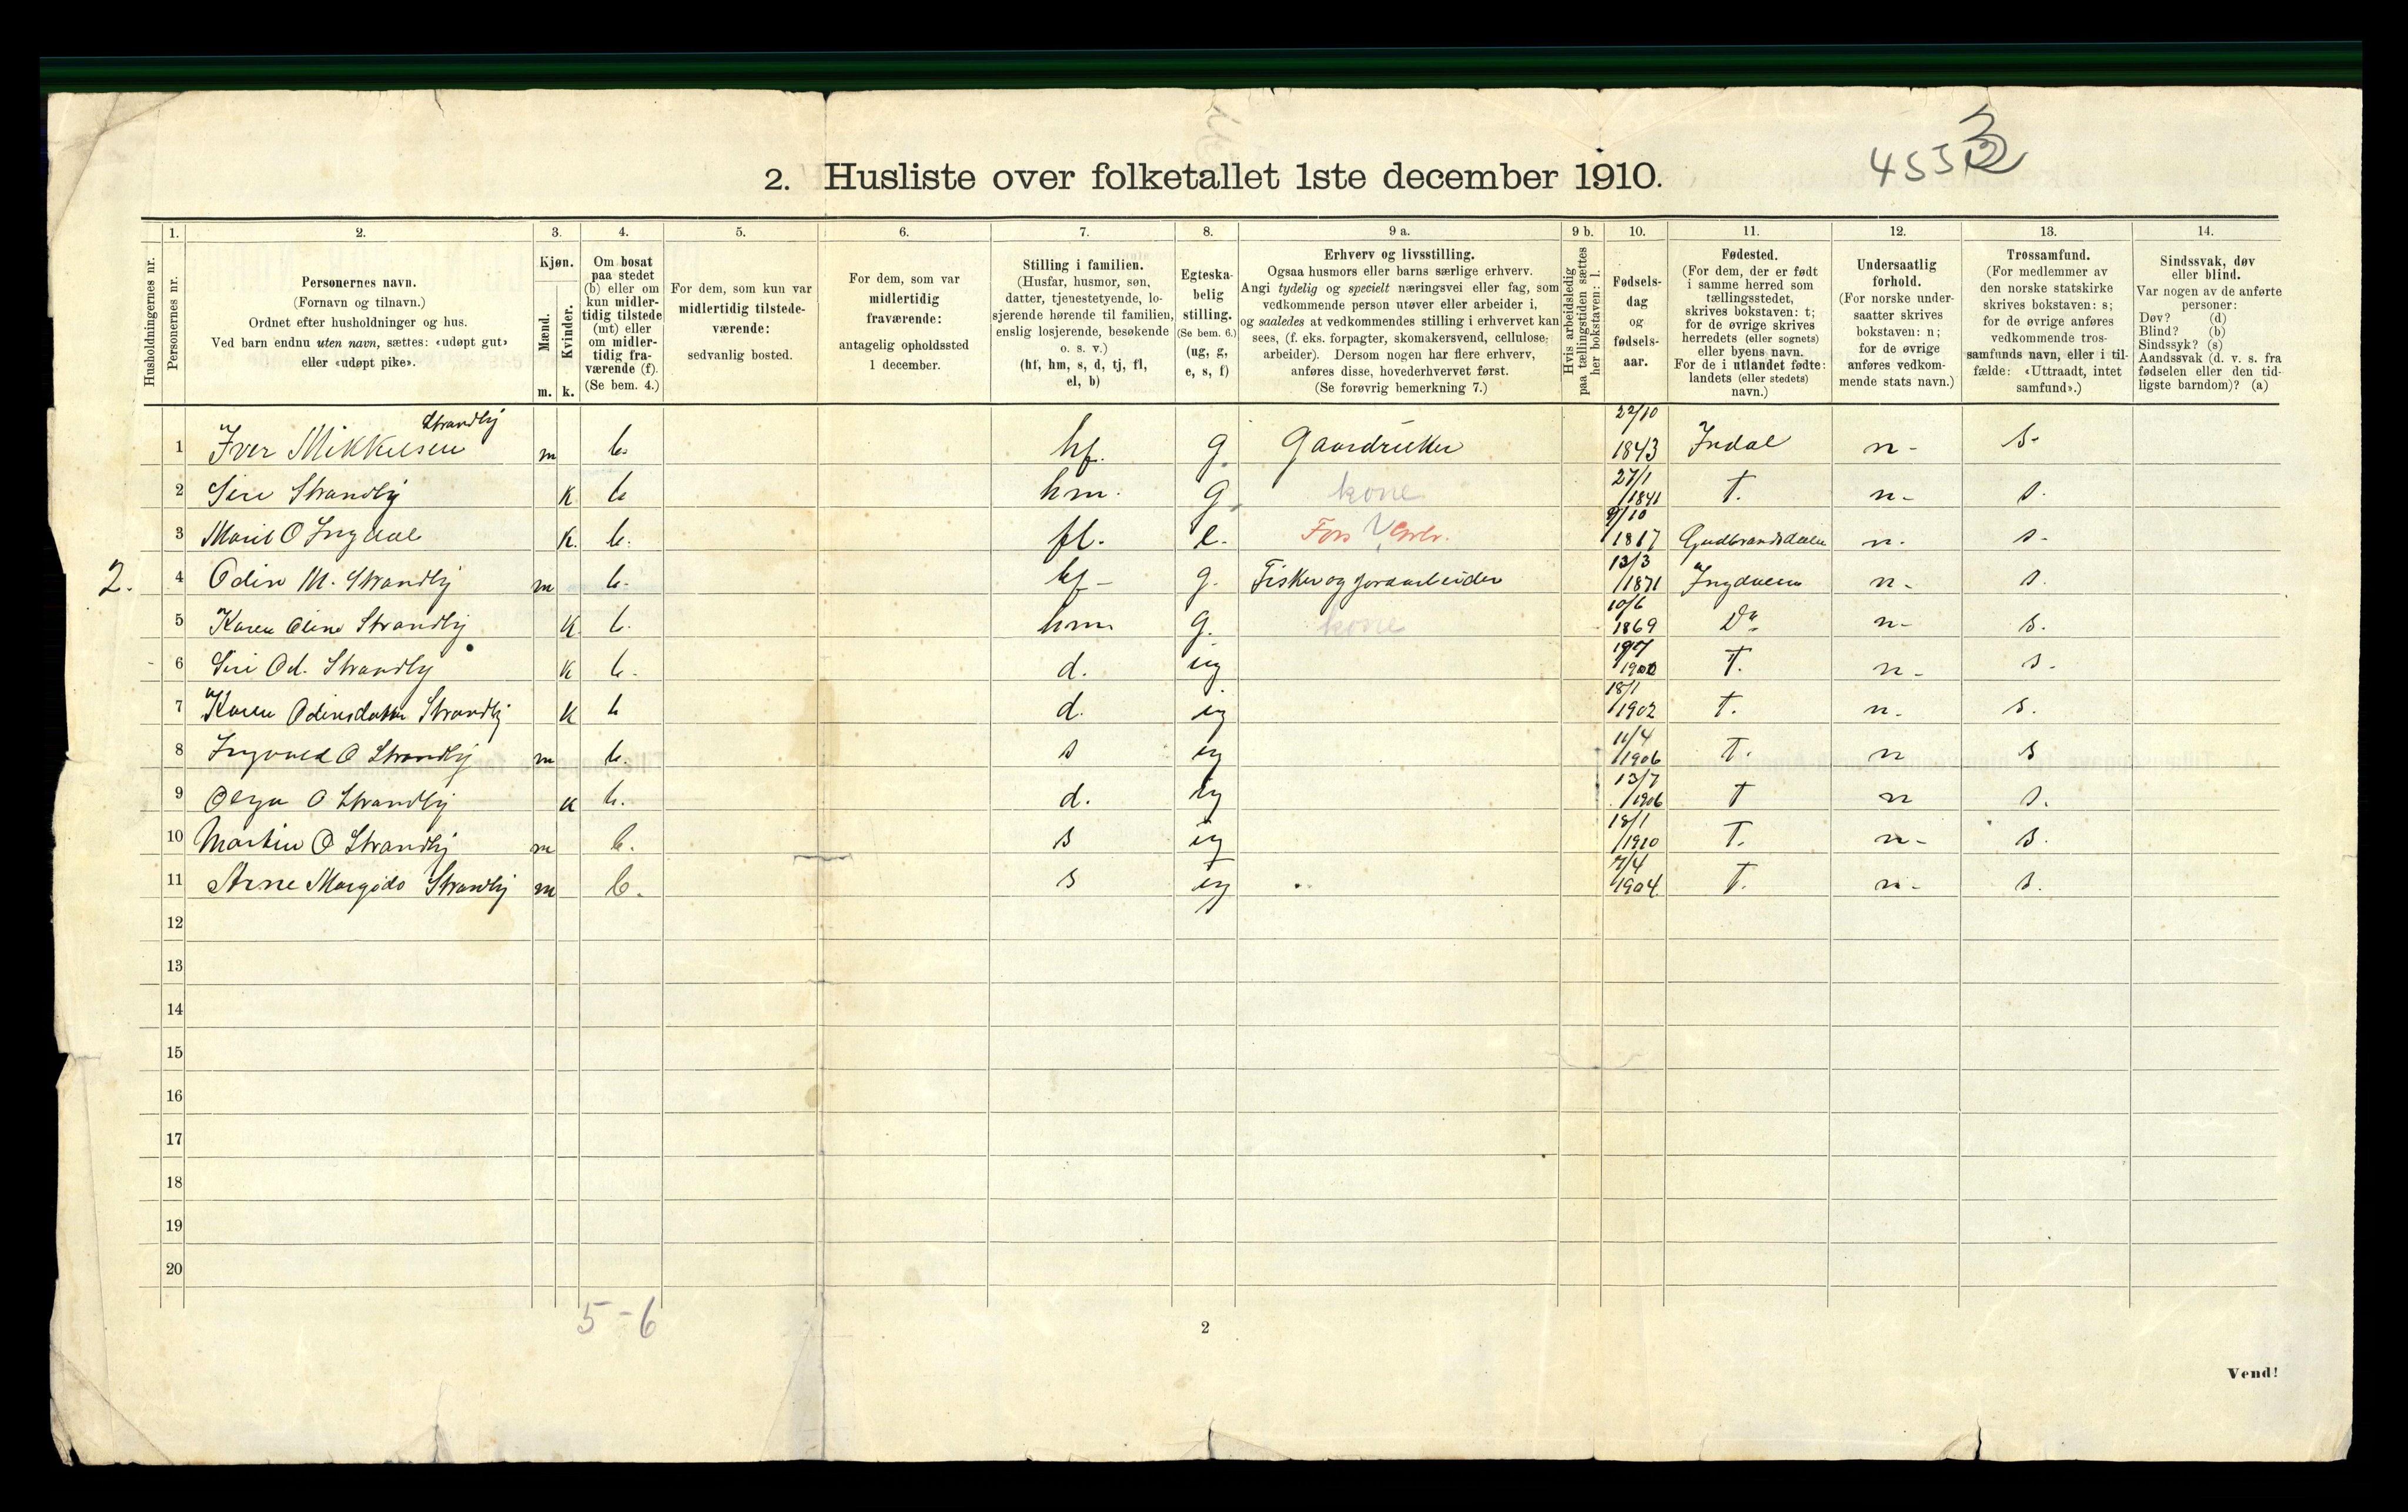 4553
2. Husliste over folketallet 1ste december 1910.
Husholdningernes nr.
1. Personernes nr.
2. Personernes navn.
(Fornavn og tilnavn.)
Ordnet efter husholdninger og hus.
Ved barn endnu uten navn, sættes: «udøpt gut»
eller «udøpt pike».
3. Kjøn.
Mænd. m.
Kvinder. k.
4. Om bosat
paa stedet
(b) eller om
kun midler-
tidig tilstede
(mt) eller
om midler-
tidig fra-
værende (f).
(Se bem. 4.)
5. For dem, som kun var
midlertidig tilstede-
værende:
sedvanlig bosted.
6. For dem, som var
midlertidig
fraværende:
antagelig opholdssted
1 december.
7. Stilling i familien.
(Husfar, husmor, søn,
datter, tjenestetyende, lo-
sjerende hørende til familien,
enslig losjerende, besøkende
o. s. v.)
(hf, hm, s, d, tj, fl,
el, b)
8. Egteska-
belig
stilling.
(Se bem. 6.)
(ug, g,
e, s, f)
9 a. Erhverv og livsstilling.
Ogsaa husmors eller barns særlige erhverv.
Angi tydelig og specielt næringsvei eller fag, som
vedkommende person utøver eller arbeider i,
og saaledes at vedkommendes stilling i erhvervet kan
sees, (f. eks. forpagter, skomakersvend, cellulose-
arbeider). Dersom nogen har flere erhverv,
anføres disse, hovederhvervet først.
(Se forøvrig bemerkning 7.)
9 b. Hvis arbeidsledig
paa tællingstiden sættes
her bokstaven: l.
10. Fødsels-
dag
og
fødsels-
aar.
11. Fødested.
(For dem, der er født
i samme herred som
tællingsstedet,
skrives bokstaven: t;
for de øvrige skrives
herredets (eller sognets)
eller byens navn.
For de i utlandet fødte:
landets (eller stedets)
navn.)
12. Undersaatlig
forhold.
(For norske under-
saatter skrives
bokstaven: n;
for de øvrige
anføres vedkom-
mende stats navn.)
13. Trossamfund.
(For medlemmer av
den norske statskirke
skrives bokstaven: s;
for de øvrige anføres
vedkommende tros-
samfunds navn, eller i til-
fælde: «Uttraadt, intet
samfund».)
14. Sindssvak, døv
eller blind.
Var nogen av de anførte
personer:
Døv? (d)
Blind? (b)
Sindssyk? (s)
Aandssvak (d. v. s. fra
fødselen eller den tid-
ligste barndom)? (a)
1 Iver Mikkelsen Strandly m b. hf. g. Gaardbruker 22/10 1843 Indal n- s-
2 Siri Strandly K b hm. g. kone 27/1 1841 T. n- s.
3 Marit O Ingdal K. b. fl. e. Fors 9/10 1817 Gudbrandsdalen n. s-
2. 4 Odin M. Strandby m b- hf- g. Fisker og jordarbeider 13/3 1871 Ingdalen n- s.
5 Karen Oline Strandby K. b. hm. g. kone 10/6 1869 Do n- s.
6 Siri Od. Strandby K b. d. ug 1900 T. n- s.
7 Karen Odinsdatter Strandby K b d. ug 18/1 1902 T. n- s.
8 Ingvald O Strandby m b. s ug 11/4 1906 T. n s
9 Olga O Strandby K b. d. ug 13/7 1906 T n s.
10 Martin O Strandby m b. s ug 18/1 1910 T. n- s.
11 Arne Margido Strandby m b. s ug 7/4 1904. T. n- s.
12
13
14
15
16
17
18
19
20
5-6
2
Vend!